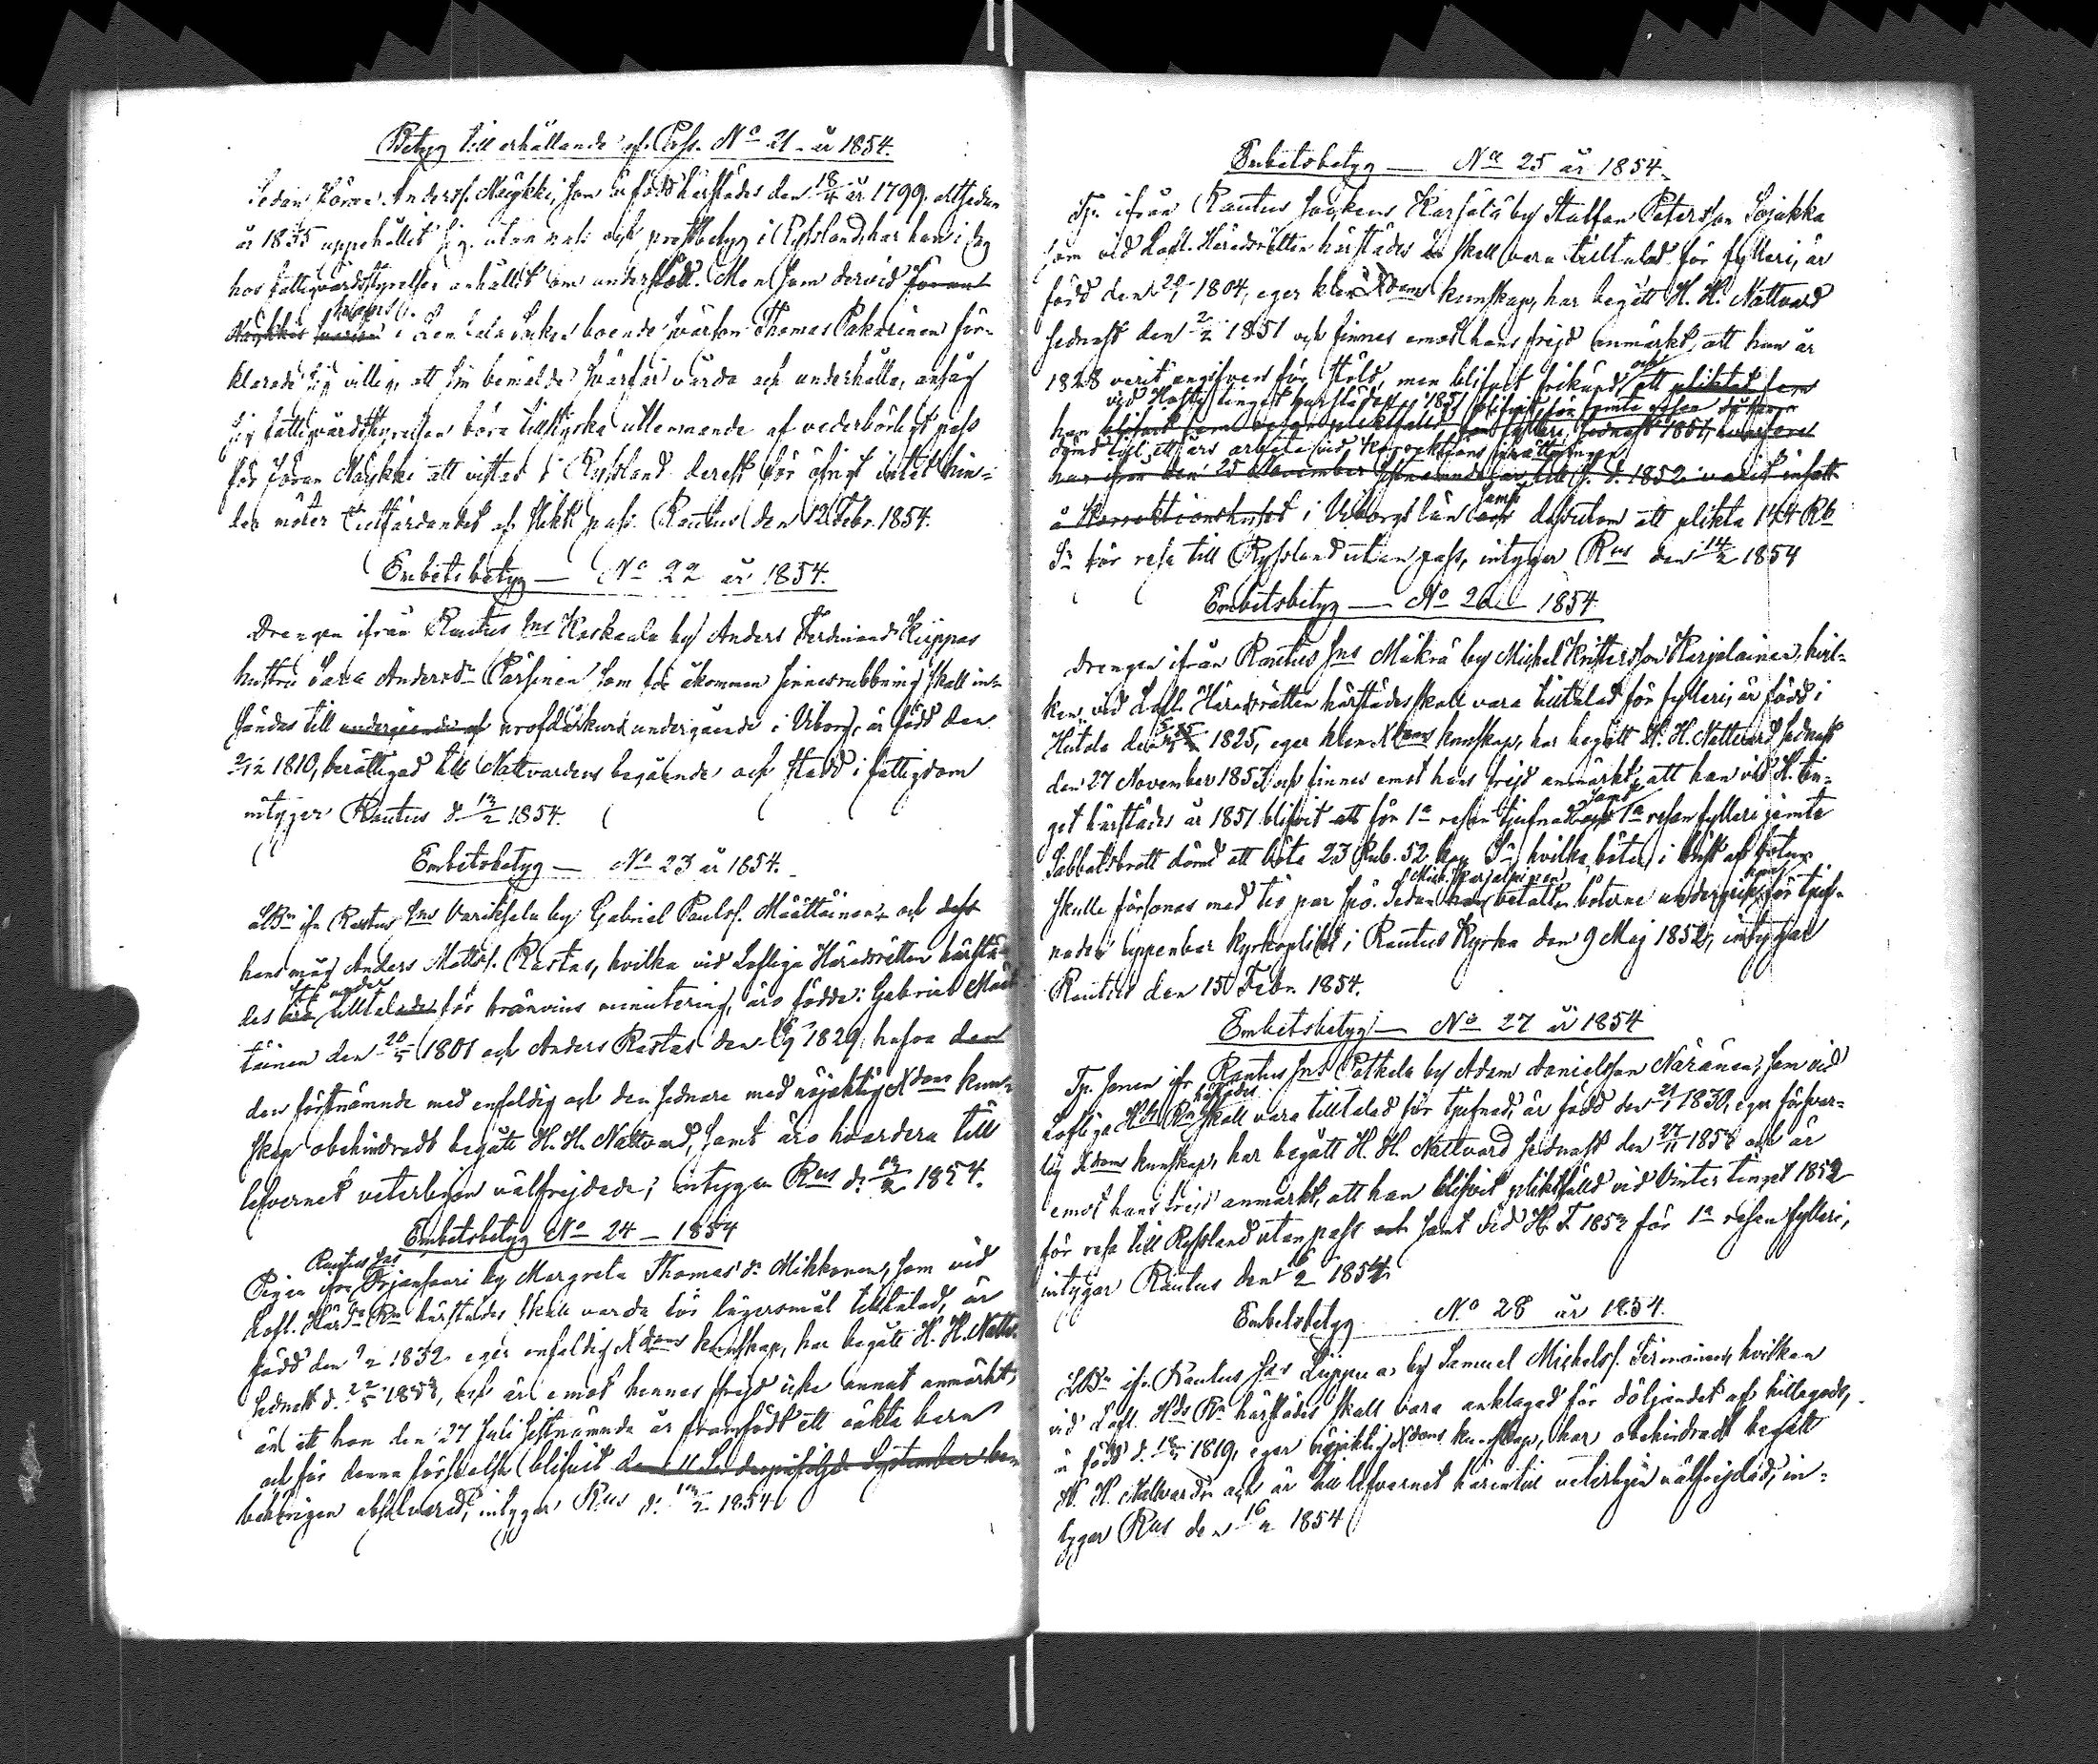 Betyg till erhållande af Pass. No 21 år 1854.
Sedan Jöran Anderss. Näykki, som är född härstädes den 18/4 år 1799, alltsedan
år 1835 uppehållit sig utan och prestbetyg i Ryssland, har han i dag
hos fattigvårdsstyrelsen anhållit om understöd. Men som dervid Jöran
Näykkis
i boende svärson Thomas Pakarinen för-
klarade sig villig, att sin bemälde svärfar vårda och underhålla, ansåg
sig fattigvårdsstyrelsen böra tillstyrka utlemnande af vederbörligt pass
för Jöran Näykki att vistas i Ryssland derest för öfrigt intet hin-
der möter utfärdandet af slikt pass. Rautus den 12 Febr. 1854.
Embetsbetyg — No 22 år 1854.
Drengen ifrån Rautus Sns Kaskaala by Anders Ferdinand Kiippas
hustru Sara Andersdr Pärsinen som för åkommen sinnesrubbning skall in-
sändas till undergående af undergående i Viborg, är född den
2/12 1810, berättigad till Nattvardens begående och stadd i fattigdom
intygar Rautus d. 13/2 1854.
Embetsbetyg — No 23 år 1854.
ifr. Rautus Sns Varikselä by Gabriel Paulss. Määttäinen och dess
hans måg Anders Mattss. Rastas, hvilka vid Lofliga Häradsrätten härstä-
des tilltalade för bränvins minutering, äro födde: Gabriel Määt-
täinen den 20/5 1801 och Anders Rastas den 1829, hafva den
den förstnämnde med enfaldig och den sednare med nöjaktig Xdoms kun-
skap obehindradt begått H. H. Nattvard, samt äro hvardera till
lefvernet veterligen välfrejdade; intygar Rus d. 13/2 1854.
Embetsbetyg No 24 — 1854
Rautus Sns
Pigan ifrån Orjansaari by Margreta Thomasdr Mikkonen, som vid
Lofl. Härds Rn härstädes skall varda för lägersmål tilltalad, är
född den 1832 eger enfaldig Xdoms kunskap, har begått H. H. Nattv.
sednast d. 22/5 1853, och är emot hennes frejd icke annat anmärkt,
än att hon den 27 Juli sistnämnde år framfödt ett oäkta barn
och för denna förseelse blifvit den 11 derpåföljde September
behörigen absolverad, intygar Rus d. 13/2 1854
Embetsbetyg — No 25 år 1854.
Tp. ifrån Rautus Sockens Karhola by Staffan Petersson Sojakka
som vid Lofl. Häradsrätten härstädes skall vara tilltalad för fylleri, är
född den 1804, eger klen Xdoms kunskap, har begått H. H. Nattvard
sednast den 2/2 1851 och finnes emot hans frejd anmärkt, att han år
1828 varit angifven för stöld, men blifvit frikänd och att pliktat fem
vid Höstetinget härstädes år 1851 blifvit för femte resan
han blifvit fem resor pliktfälld fylleri sednast 1851,
dömd till ett års arbete vid Korrektions inrättningen
har ifrån den 25 November sistnämnde år till d. 1852 varit insatt
å Korrektionshuset i Viborgs län samt dessutom att plikta 144 Rb
Sr för resa till Ryssland utan pass, intygar Rus den 14/2 1854
Embetsbetyg — No 26 — 1854
Drengen ifrån Rautus Sns Mäkrä by Michel Kristersson Karjalainen, hvil-
ken vid Lofl. Häradsrätten härstädes skall vara tilltalad för fylleri, är född i
Hiitola den 1825, eger klen Xdoms kunskap, har begått H. H. Nattvard sednast
den 27 November 1853 och finnes emot hans frejd anmärkt, att han vid H. tin-
get härstädes år 1851 blifvit för 1a resan tjufnad samt 1a resan fylleri jemte
Sabbatsbrott dömd att böta 23 Rub. 52 kop. Sr hvilka böter i brist af botum
Mich. Karjalainen
skulle försonas med tio par spö. Sedan han betalt böterne undergick han för tjuf-
naden uppenbar kyrkoplikt i Rautus Kyrka den 9 Maj 1852, intygar
Rautus den 15 Febr. 1854.
Embetsbetyg — No 27 år 1854
Tp. sonen ifr. Rautus Sns Potkela by Adam Danielsson Näränen, som vid
härstädes
Lofliga Hds Rn skall vara tilltalad för tjufnad, är född den 21/1 1830, eger försvar-
lig Xdoms kunskap, har begått H. H. Nattvard sednast den 27/11 1853 och är
emot hans frejd anmärkt, att han blifvit pliktfälld vid Vintertinget 1852
för resa till Ryssland utan pass och samt vid H. T. 1853 för 1a resan fylleri,
intygar Rautus den 16/2 1854.
Embetsbetyg No 28 år 1854.
ifr. Rautus Sns Liippua by Samuel Michelss. Termonen, hvilken
vid Lofl. Hds Rn härstädes skall vara anklagad för döljandet af hittegods,
är född d. 1819, eger nöjaktig Xdoms kunskap, har obehindradt begått
H. H. Nattvarden och är till lefvernet härintill veterligen välfrejdad, in-
tygar Rus den 16/2 1854